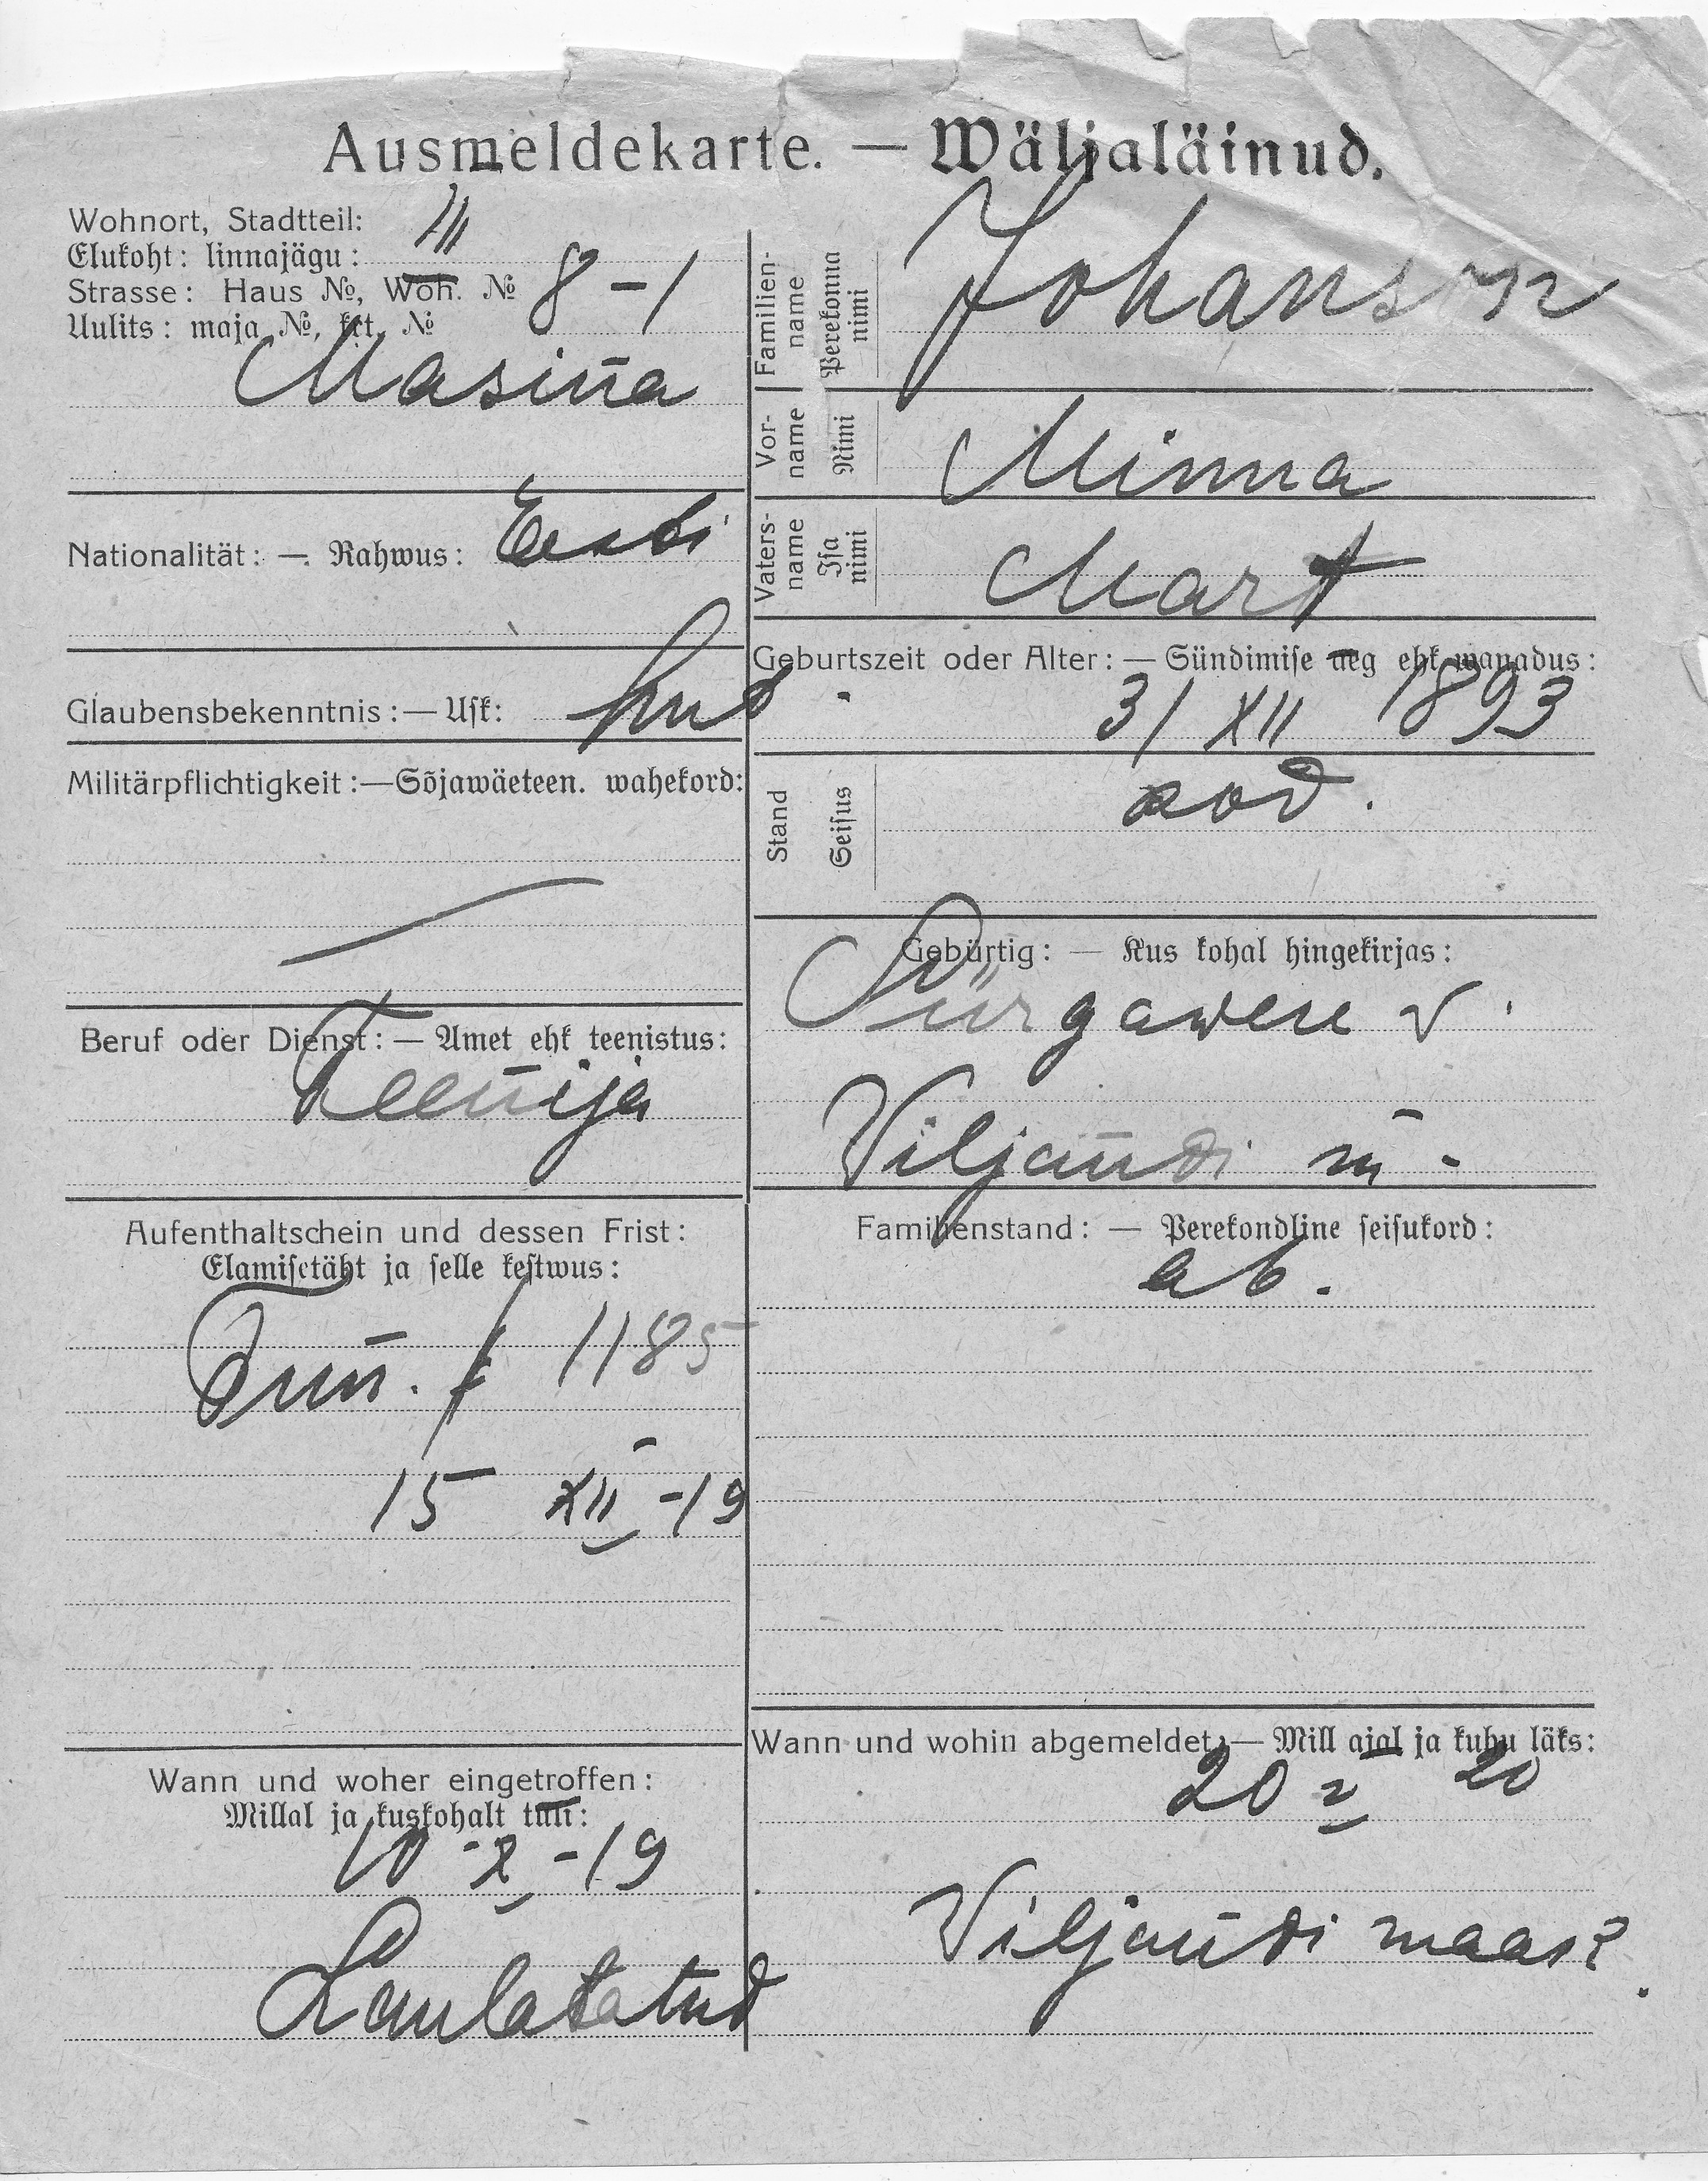 Ausmeldekarte. — Wäljaläinud.
Wohnort, Stadtteil: III
Elukoht: linnajägu:
Strasse: Haus №, Woh. № 8 – 1
Uulits: maja №, krt. №
Masina
Nationalität: — Rahwus: Eesti
Glaubensbekenntnis: — Usk: lut.
Militärpflichtigkeit: — Sõjawäeteen. wahekord:
Beruf oder Dienst: — Amet ehk teenistus:
Teenija
Aufenthaltschein und dessen Frist:
Elamisetäht ja selle kestwus:
1185
15 XII -19
Wann und woher eingetroffen:
Millal ja kuskohalt tuli:
10 - X - 19
Familien-
name
Perekonna
nimi
Johanson
Vor-
name
Nimi
Minna
Vaters-
name
Isa
nimi
Mart
Geburtszeit oder Alter: — Sündimise aeg ehk wanadus:
31 XII 1893
Stand
Seisus
Gebürtig: — Kus kohal hingekirjas:
Pürgawere v.
Viljandi m.
Familienstand: — Perekondline seisukord:
ab.
Wann und wohin abgemeldet: — Mill ajal ja kuhu läks:
20 V 20
Viljandi maas?